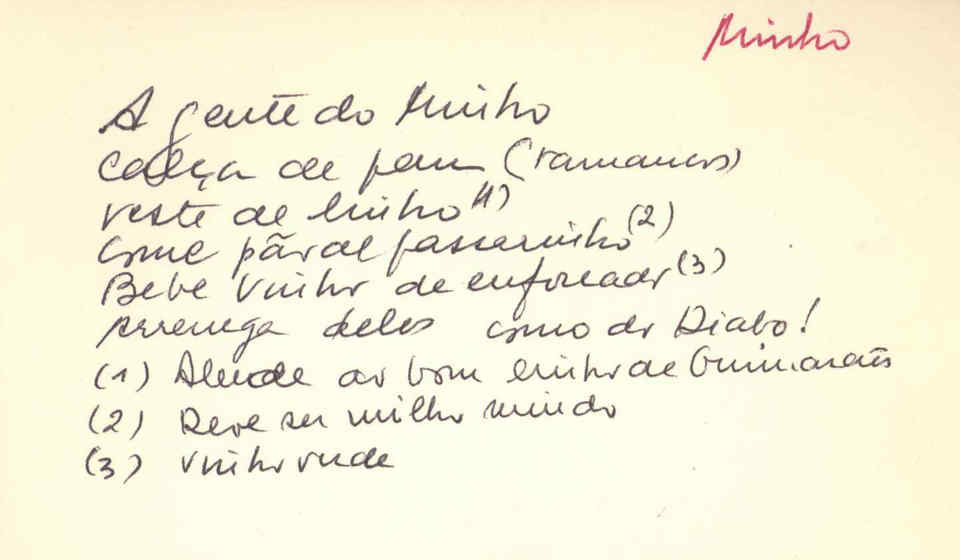 Minho
A gente do Minho
calça de pau (tamancos)
veste de linho (1)
come pão de passarinho (2)
Bebe vinho de enforcado (3)
Arrenega deles como do Diabo!
(1) Alude ao bom linho de Guimarães
(2) Deve ser milho miúdo
(3) vinho verde